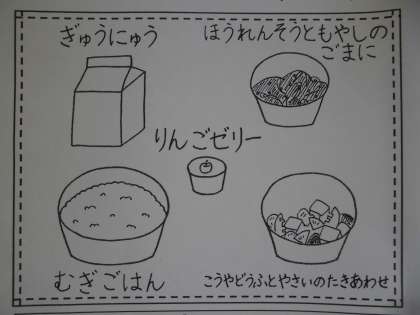 ぎゅうにゅう
ほうれんそうともやしの
ごまに
りんごゼリー
むぎごはん
こうやどうふとやさいのたきあわせ